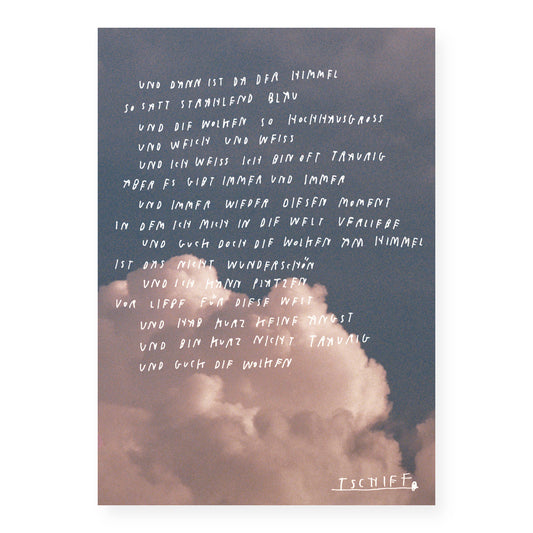 UND DANN IST DA DER HIMMEL
SO SATT STRAHLEND BLAU
UND DIE WOLKEN SO HOCHHAUSGROSS
UND WEICH UND WEISS
UND ICH WEISS ICH BIN OFT TRAURIG
ABER ES GIBT IMMER UND IMMER
UND IMMER WIEDER DIESEN MOMENT
IN DEM ICH MICH IN DIE WELT VERLIEBE
UND GUCK DOCH DIE WOLKEN AM HIMMEL
IST DAS NICHT WUNDERSCHÖN
UND ICH KANN PLATZEN
VOR LIEBE FÜR DIESE WELT
UND HAB KURZ KEINE ANGST
UND BIN KURZ NICHT TRAURIG
UND GUCK DIE WOLKEN
TSCHIFF